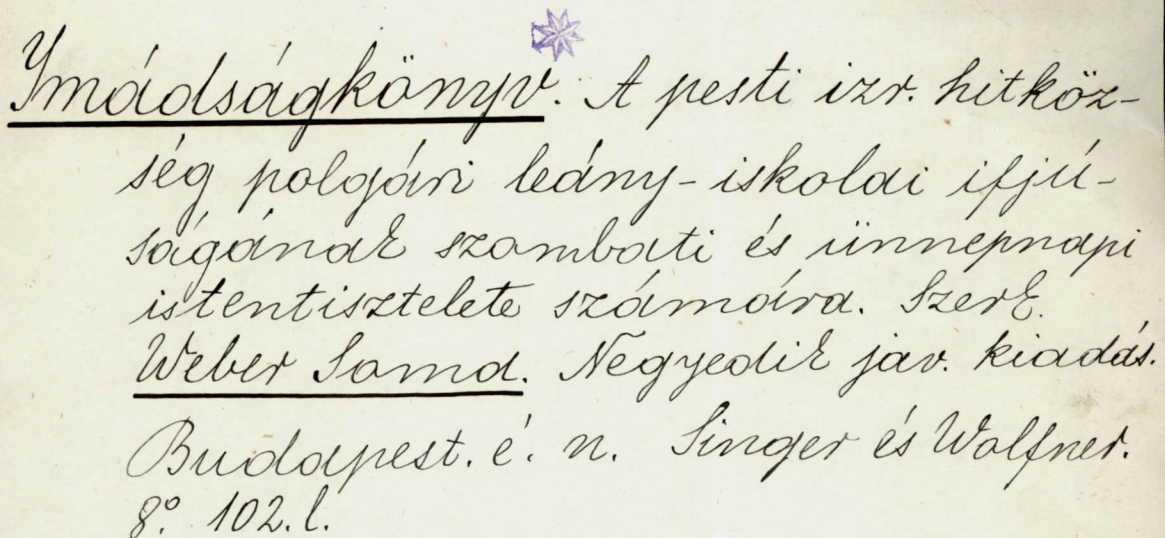 Imádságkönyv. A pesti izr. hitköz-
ség polgári leány-iskolai ifjú-
ságának szombati és ünnepnapi
istentisztelete számára. Szerk.
Weber Samd. Negyedik jav. kiadás.
Budapest. é. n. Singer és Wolfner.
8° 102. l.